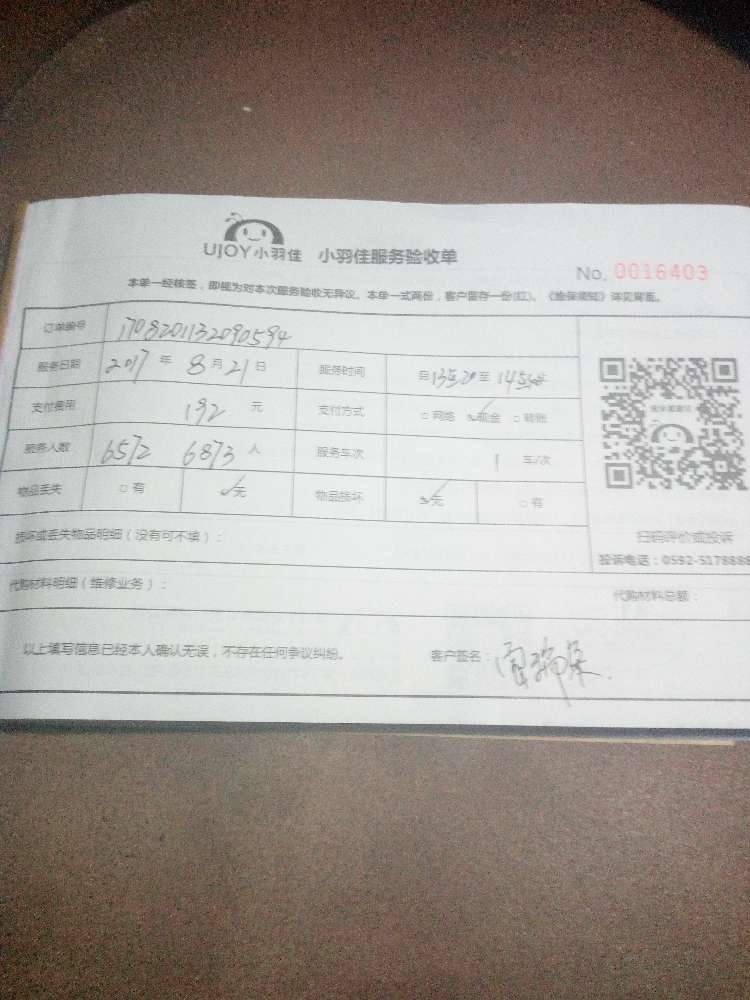 UJOY小羽佳 小羽佳服务验收单
No. 0016403
本单一经核签，即视为对本次服务验收无异议。本单一式两份，客户留存一份(红)。《维保须知》详见背面。
订单编号 1708201132090594
服务日期 2017 年 8 月 21 日 服务时间 自 13:20 至
支付费用 192 元 支付方式 □ 网络 ☑ 现金 □ 转账
服务人数 6572 6873 人 服务车次 1 车/次
物品丢失 □ 有 ☑ 无 物品损坏 ☑ 无 □ 有
损坏或丢失物品明细（没有可不填）：
扫码评价或投诉
投诉电话：0592-5178888
代购材料明细（维修业务）：
代购材料总额：
以上填写信息已经本人确认无误，不存在任何争议纠纷。 客户签名：